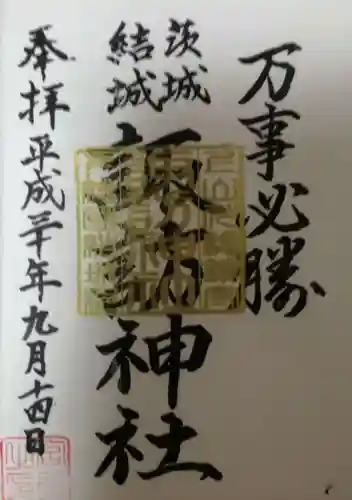 万事必勝
茨城
結城
諏訪神社
奉拝
平成三十年九月十四日